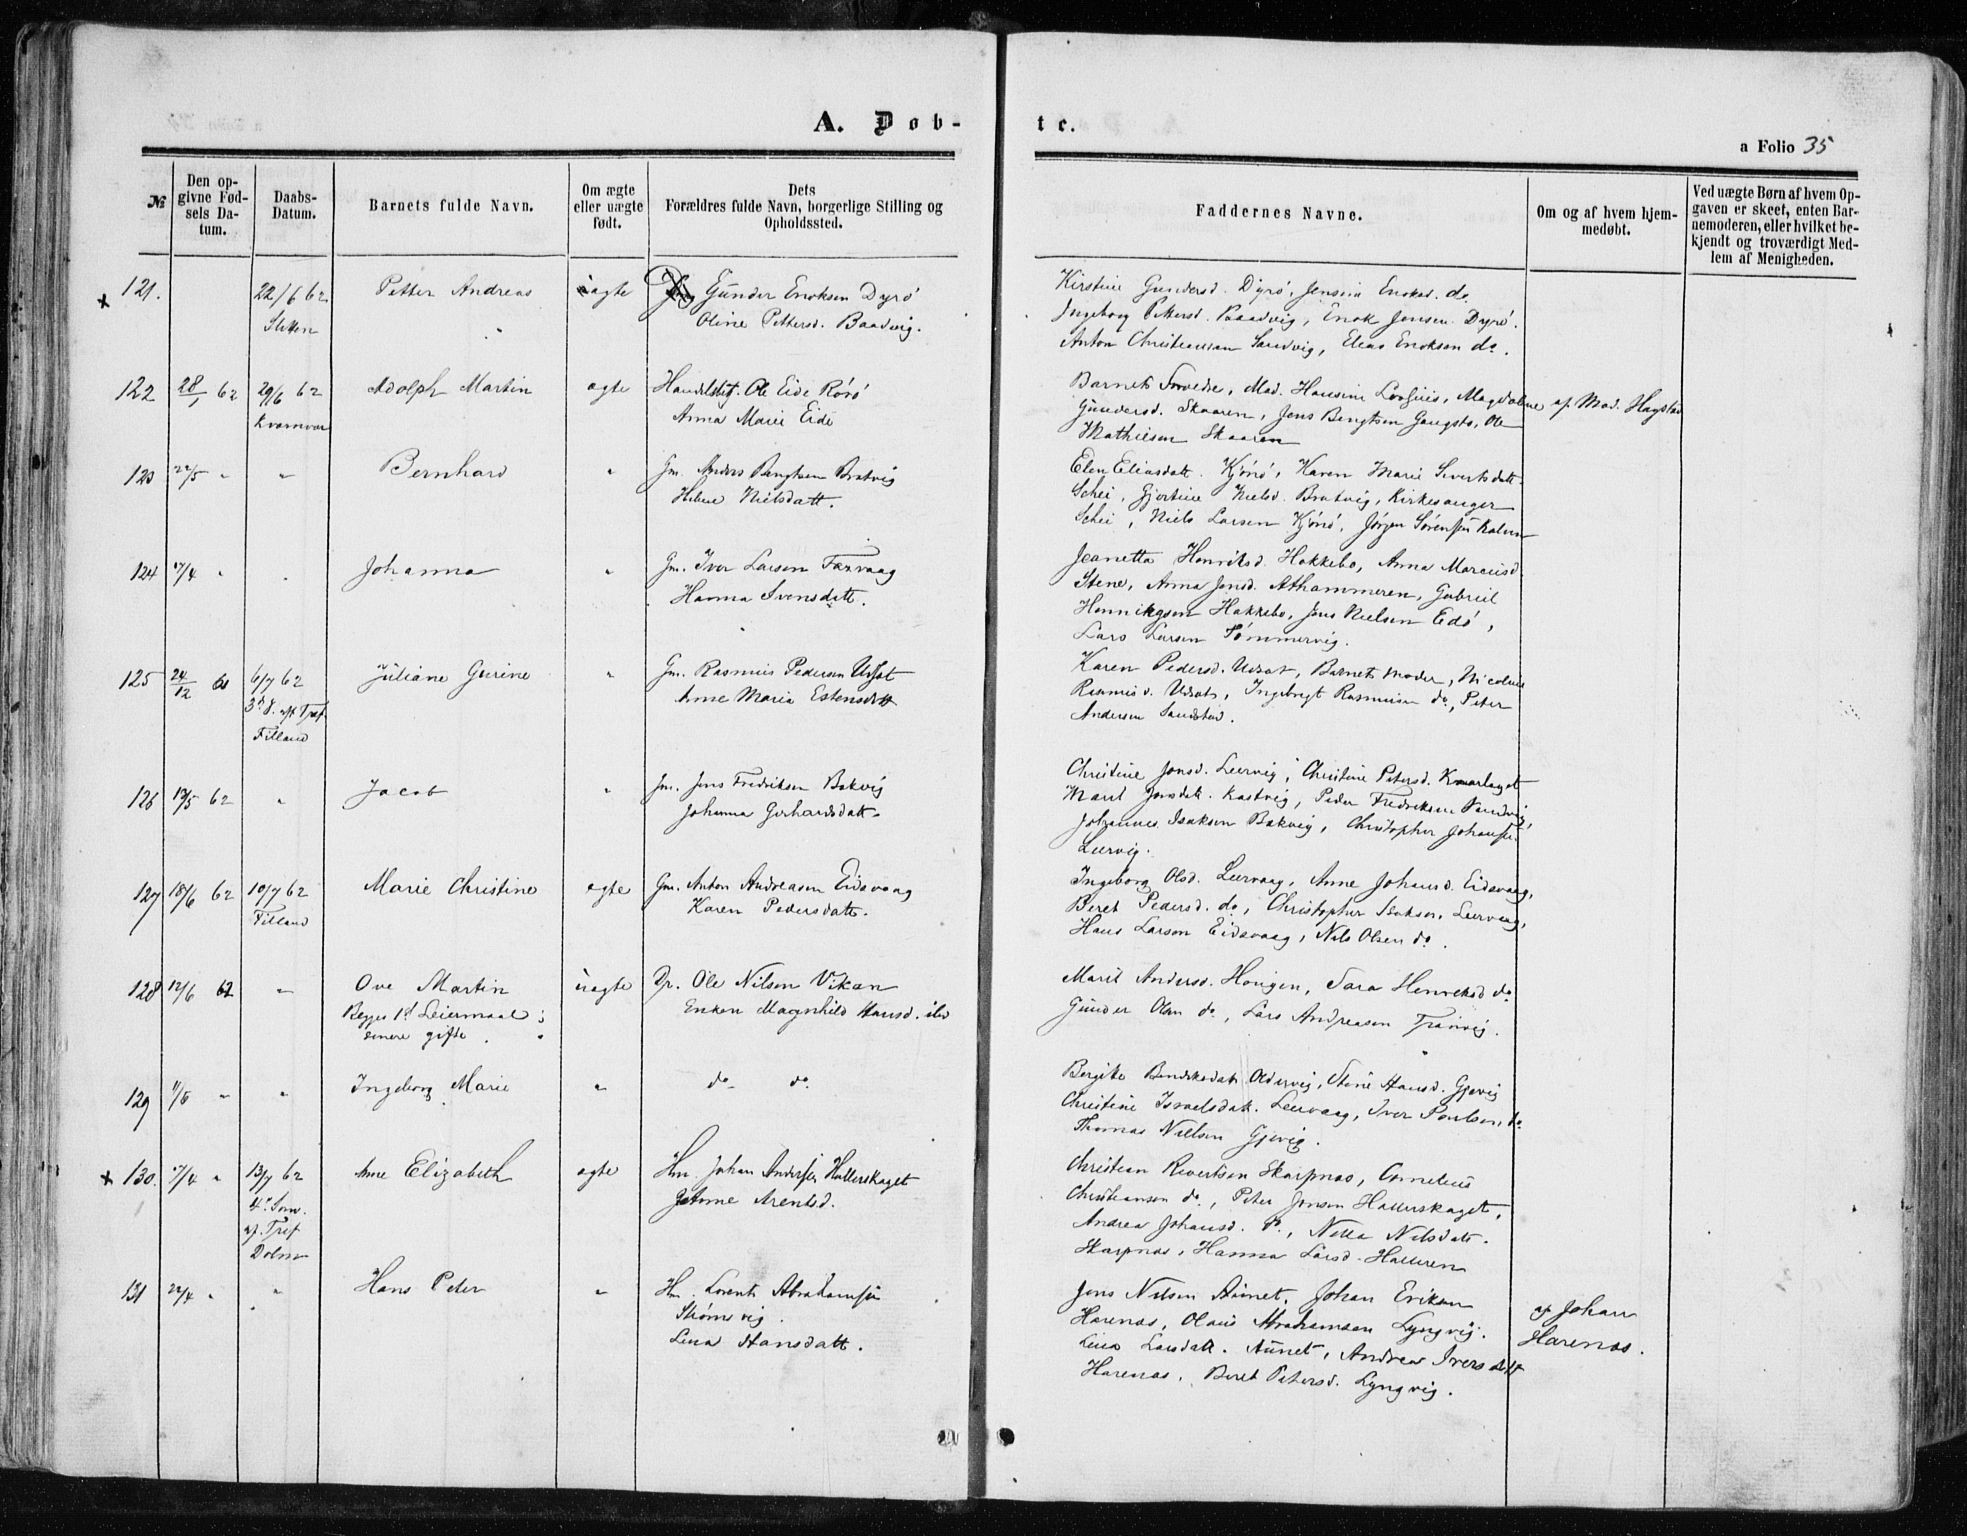 A. Døb-
te.
a Folio 35
№
Den op-
givne Fød-
sels Da-
tum.
Daabs-
Datum.
Barnets fulde Navn.
Om ægte
eller uægte
født.
Dets
Forældres fulde Navn, borgerlige Stilling og
Opholdssted.
Faddernes Navne.
Om og af hvem hjem-
medøbt.
Ved uægte Børn af hvem Op-
gaven er skeet, enten Bar-
nemoderen, eller hvilket be-
kjendt og troværdigt Med-
lem af Menigheden.
+ 121.
22/6 62
Petter Andreas
Gunder Enoksen Dyrö
Oline Pettersd. Baadvig.
Kirstine Gundersd. Dyrö, Jensine Enoksd. do
Ingeborg Pettersd. Baadvig, Enok Jensen Dyrö.
Anton Christiansen Sandvig, Elias Enoksen do.
122
28/1 62
29/6 62
Kvamvær
Adolph Martin
ægte
Ole Eide Rörö
Anna Marie Eide
Barnets Forældre, Mad. Hansine Magdalene
Gundersd. Skaaren, Jens Bengtsen Gaugstö, Ole
Mathiesen Skaaren
af Mad. Hagstad
123
22/5 "
"
Bernhard
"
Gm. Anders Bengtsen Bratvig
Helene Nielsdatt.
Elen Eliasdatt. Kjönö, Karen Marie Sivertsdatt.
Schei, Gjertine Nielsd. Bratvig, Kirkesanger
Schei, Niels Larsen Kjönö, Jörgen Sörensen
124
17/4 "
"
Johanna
"
Gm. Iver Larsen Farvaag
Hanna Svensdatt.
Jeanetta Henriksd. Hakkebo, Anna Marcusd.
Stene, Anna Jensd. Athammeren, Gabriel
Hennikgsen Hakkebo, Jens Nielsen Edö,
Lars Larsen Tömmervig.
125
24/12 61
6/7 62
3d S. aft Tref.
Filland
Juliane Gurine
"
Gm. Rasmus Pedersen Utset
Anne Maria Estensdatt
Karen Pedersd. Udsæt, Barnets Moder, Nicoline
Rasmusd. Udsæt, Ingebrigt Rasmusen do, Peter
Andersen Sandstad.
126
13/5 62
"
Jacob
"
Jens Fredriksen Bakvig
Johanna Gerhardsdatt.
Christine Jonsd. Leervig, Christine Petersd. Kvarlaget
Marit Jonsdatt. Kastvig, Peder Fredriksen Sandvig,
Johannes Isaksen Bakvig, Christopher Johansen
Leervig.
127
18/6 62
10/7 62
Filland
Marie Christine
ægte
Gm. Anton Andreasen Eidsvaag
Karen Pedersdatt.
Ingeborg Olsd. Leervaag, Anne Johansd. Eidsvaag,
Beret Pedersd. do, Christopher Isaksen Leervaag,
Hans Larsen Eidsvaag, Nils Olsen do.
128
12/6 62
"
Ove Martin
Begges 1st Leiermaal;
senere gifte.
uægte
Dr. Ole Nilsen Vikan
Enken Magnhild Hansd. ibd
Marit Andersd. Hougen, Sara Henriksd do
Gunder Olsen do, Lars Andreasen Tranvig.
129
11/6 "
"
Ingeborg Marie
"
do do
Bergite Bendiksdatt. Oldervig, Stine Hansd. Gjevig
Christine Israelsdatt. Leervaag, Iver Poulsen do
Thomas Nielsen Gjevig.
+ 130.
17/4 "
13/7 62
4de Sønd.
af. Tref
Dolm
Anne Elizabeth
ægte
Hm. Johan Andersen Hallerskaget
Anne Arentsd.
Christian Revertsen Skarpnæs, Cornelius
Christiansen do, Peter Jonsen Hallerskaget,
Andrea Johansd. do, Nella Nilsdatt.
Skarpnæs, Hanna Larsd. Halleren
131
22/4 "
"
Hans Peter
"
Hm. Lorents Abrahamsen
Strömsvig.
Lena Hansdatt.
Jens Nilsen Aunet, Johan Eriksen
Harenæs, Olaus Abrahamsen Lyngvig.
Lena Larsdatt. Aunet, Andrea Iversdatt
Harenæs, Beret Petersd. Lyngvig.
af Johan
Harenæs.